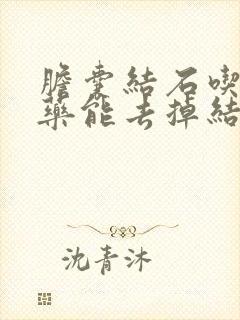 膽囊結石喫
藥能去掉結
沈青沐